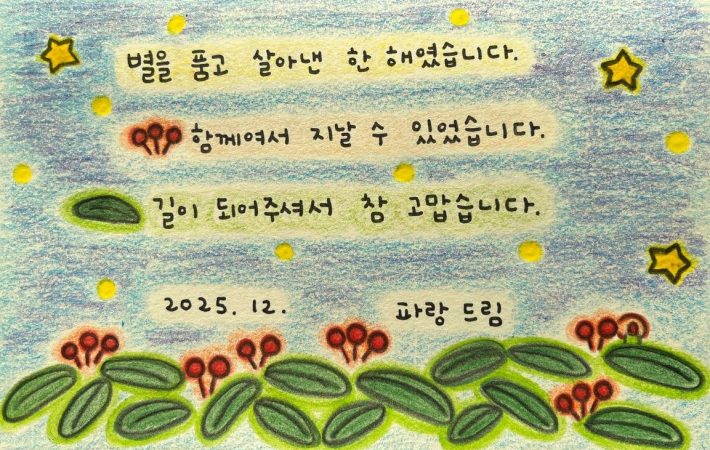 별을 품고 살아낸 한 해였습니다.
함께여서 지날 수 있었습니다.
길이 되어주셔서 참 고맙습니다.
2025. 12. 파랑 드림